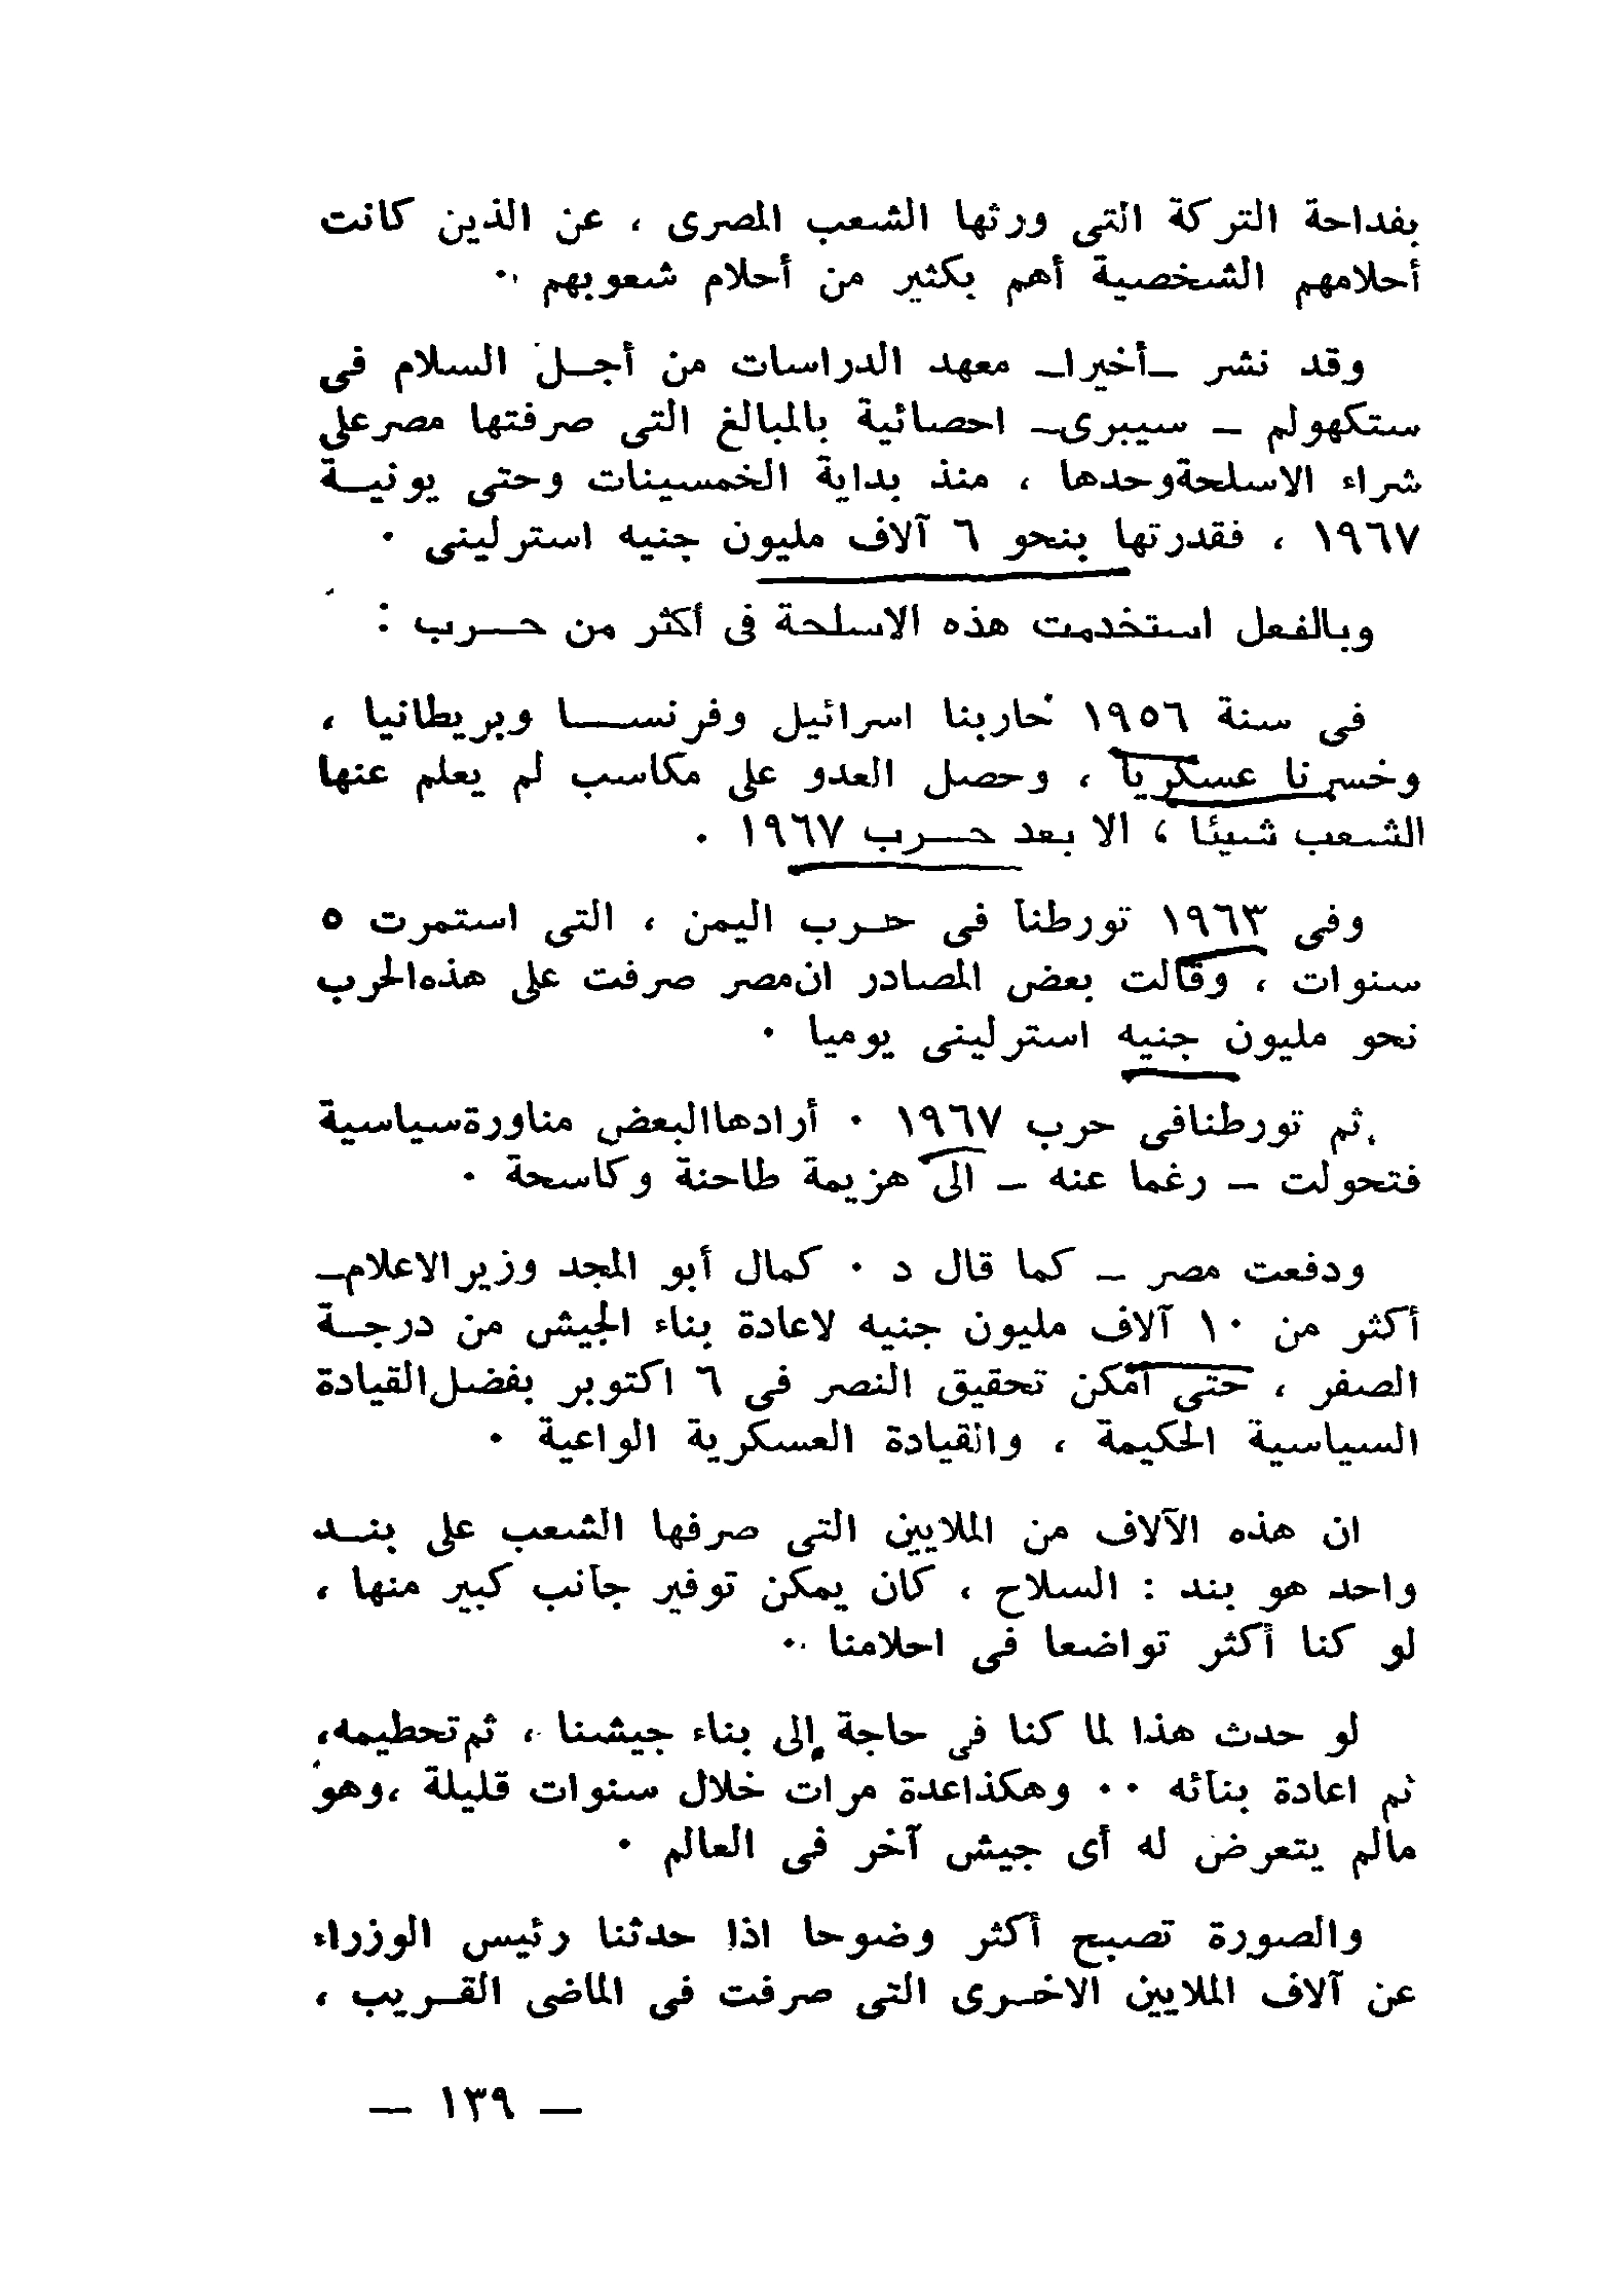 بفداحة التركة التى ورثها الشعب المصرى ، عن الذين كانت
أحلامهم الشخصية أهم بكثير من أحلام شعوبهم ٠
وقد نشر –أخيرا– معهد الدراسات من أجل السلام فى
ستكهولم – سيبرى– احصائية بالمبالغ التى صرفتها مصر على
شراء الاسلحة وحدها ، منذ بداية الخمسينات وحتى يونية
١٩٦٧ ، فقدرتها بنحو ٦ آلاف مليون جنيه استرلينى ٠
وبالفعل استخدمت هذه الاسلحة فى أكثر من حرب :
فى سنة ١٩٥٦ حاربنا اسرائيل وفرنسا وبريطانيا ،
وخسرنا عسكريا ، وحصل العدو على مكاسب لم يعلم عنها
الشعب شيئا ، الا بعد حرب ١٩٦٧ ٠
وفى ١٩٦٣ تورطنا فى حرب اليمن ، التى استمرت ٥
سنوات ، وقالت بعض المصادر ان مصر صرفت على هذه الحرب
نحو مليون جنيه استرلينى يوميا ٠
ثم تورطنا فى حرب ١٩٦٧ ٠ أرادها البعض مناورة سياسية
فتحولت – رغما عنه – الى هزيمة طاحنة وكاسحة ٠
ودفعت مصر – كما قال د ٠ كمال أبو المجد وزير الاعلام–
أكثر من ١٠ آلاف مليون جنيه لاعادة بناء الجيش من درجة
الصفر ، حتى أمكن تحقيق النصر فى ٦ اكتوبر بفضل القيادة
السياسية الحكيمة ، والقيادة العسكرية الواعية ٠
ان هذه الآلاف من الملايين التى صرفها الشعب على بند
واحد هو بند : السلاح ، كان يمكن توفير جانب كبير منها ،
لو كنا أكثر تواضعا فى احلامنا ٠
لو حدث هذا لما كنا فى حاجة إلى بناء جيشنا ، ثم تحطيمه،
ثم اعادة بنائه ٠٠ وهكذا عدة مرات خلال سنوات قليلة ،وهو
مالم يتعرض له أى جيش آخر فى العالم ٠
والصورة تصبح أكثر وضوحا اذا حدثنا رئيس الوزراء
عن آلاف الملايين الاخرى التى صرفت فى الماضى القريب ،
— ١٣٩ —